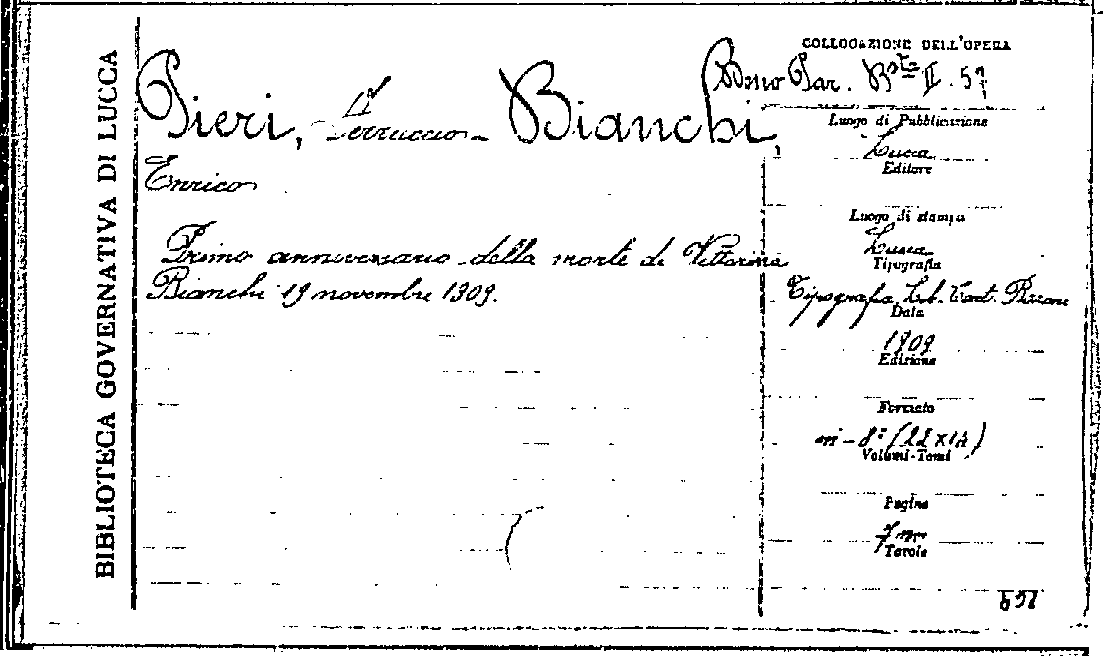 BIBLIOTECA GOVERNATIVA DI LUCCA
Pieri, Ferruccio - Bianchi,
Enrico
Primo anniversario della morte di Vittorina
Bianchi 19 novembre 1909.
COLLOCAZIONE DELL'OPERA
Bta II. 57
Luogo di Pubblicazione
Lucca
Editore
Luogo di stampa
Lucca
Tipografia
Tipografia
Data
1909
Edizione
Formato
in-8º (22x14)
Volumi-Tomi
Pagine
7
Tavole